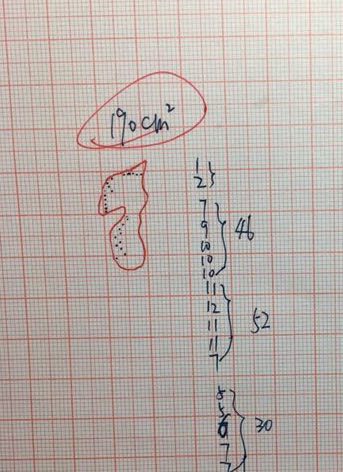 190cm²
1
2 }
7
9
10
10
10 } 46
11
12
11
11
7 } 52
5
5
6
7
7 } 30